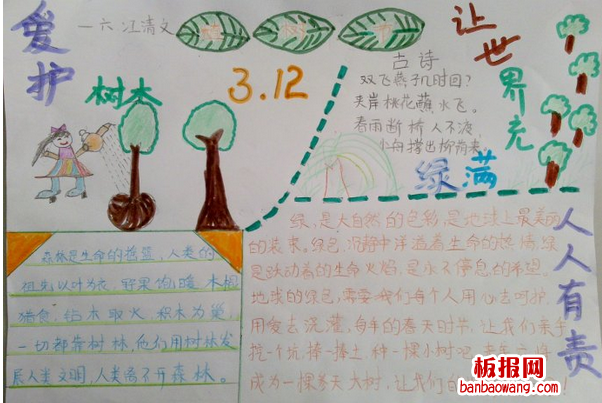 爱护
树木
一六、江清文
植 树 节
3.12
让世界充
绿满
人人有责
古诗
双飞燕子几时回?
夹岸桃花蘸水飞。
春雨断桥人不渡
小舟撑出柳荫来。
森林是生命的摇篮,人类的
祖先以叶为衣,野果饱腹,木棍
捕食,钻木取火,积木为巢,
一切都靠树林,他们用树林发
展人类文明,人类离不开森林。
绿,是大自然的色彩,是地球上最美丽
的装束。绿色,沉静中洋溢着生命的
是跃动着的生命火焰,是永不停息的希望。
地球的绿色,需要我们每个人用心去呵护,
用爱去浇灌,每年的春天时节,让我们亲手
挖一个坑,捧一捧土,种一棵小树吧
成为一棵参天大树,让我们的
板报网
banbaowang.com